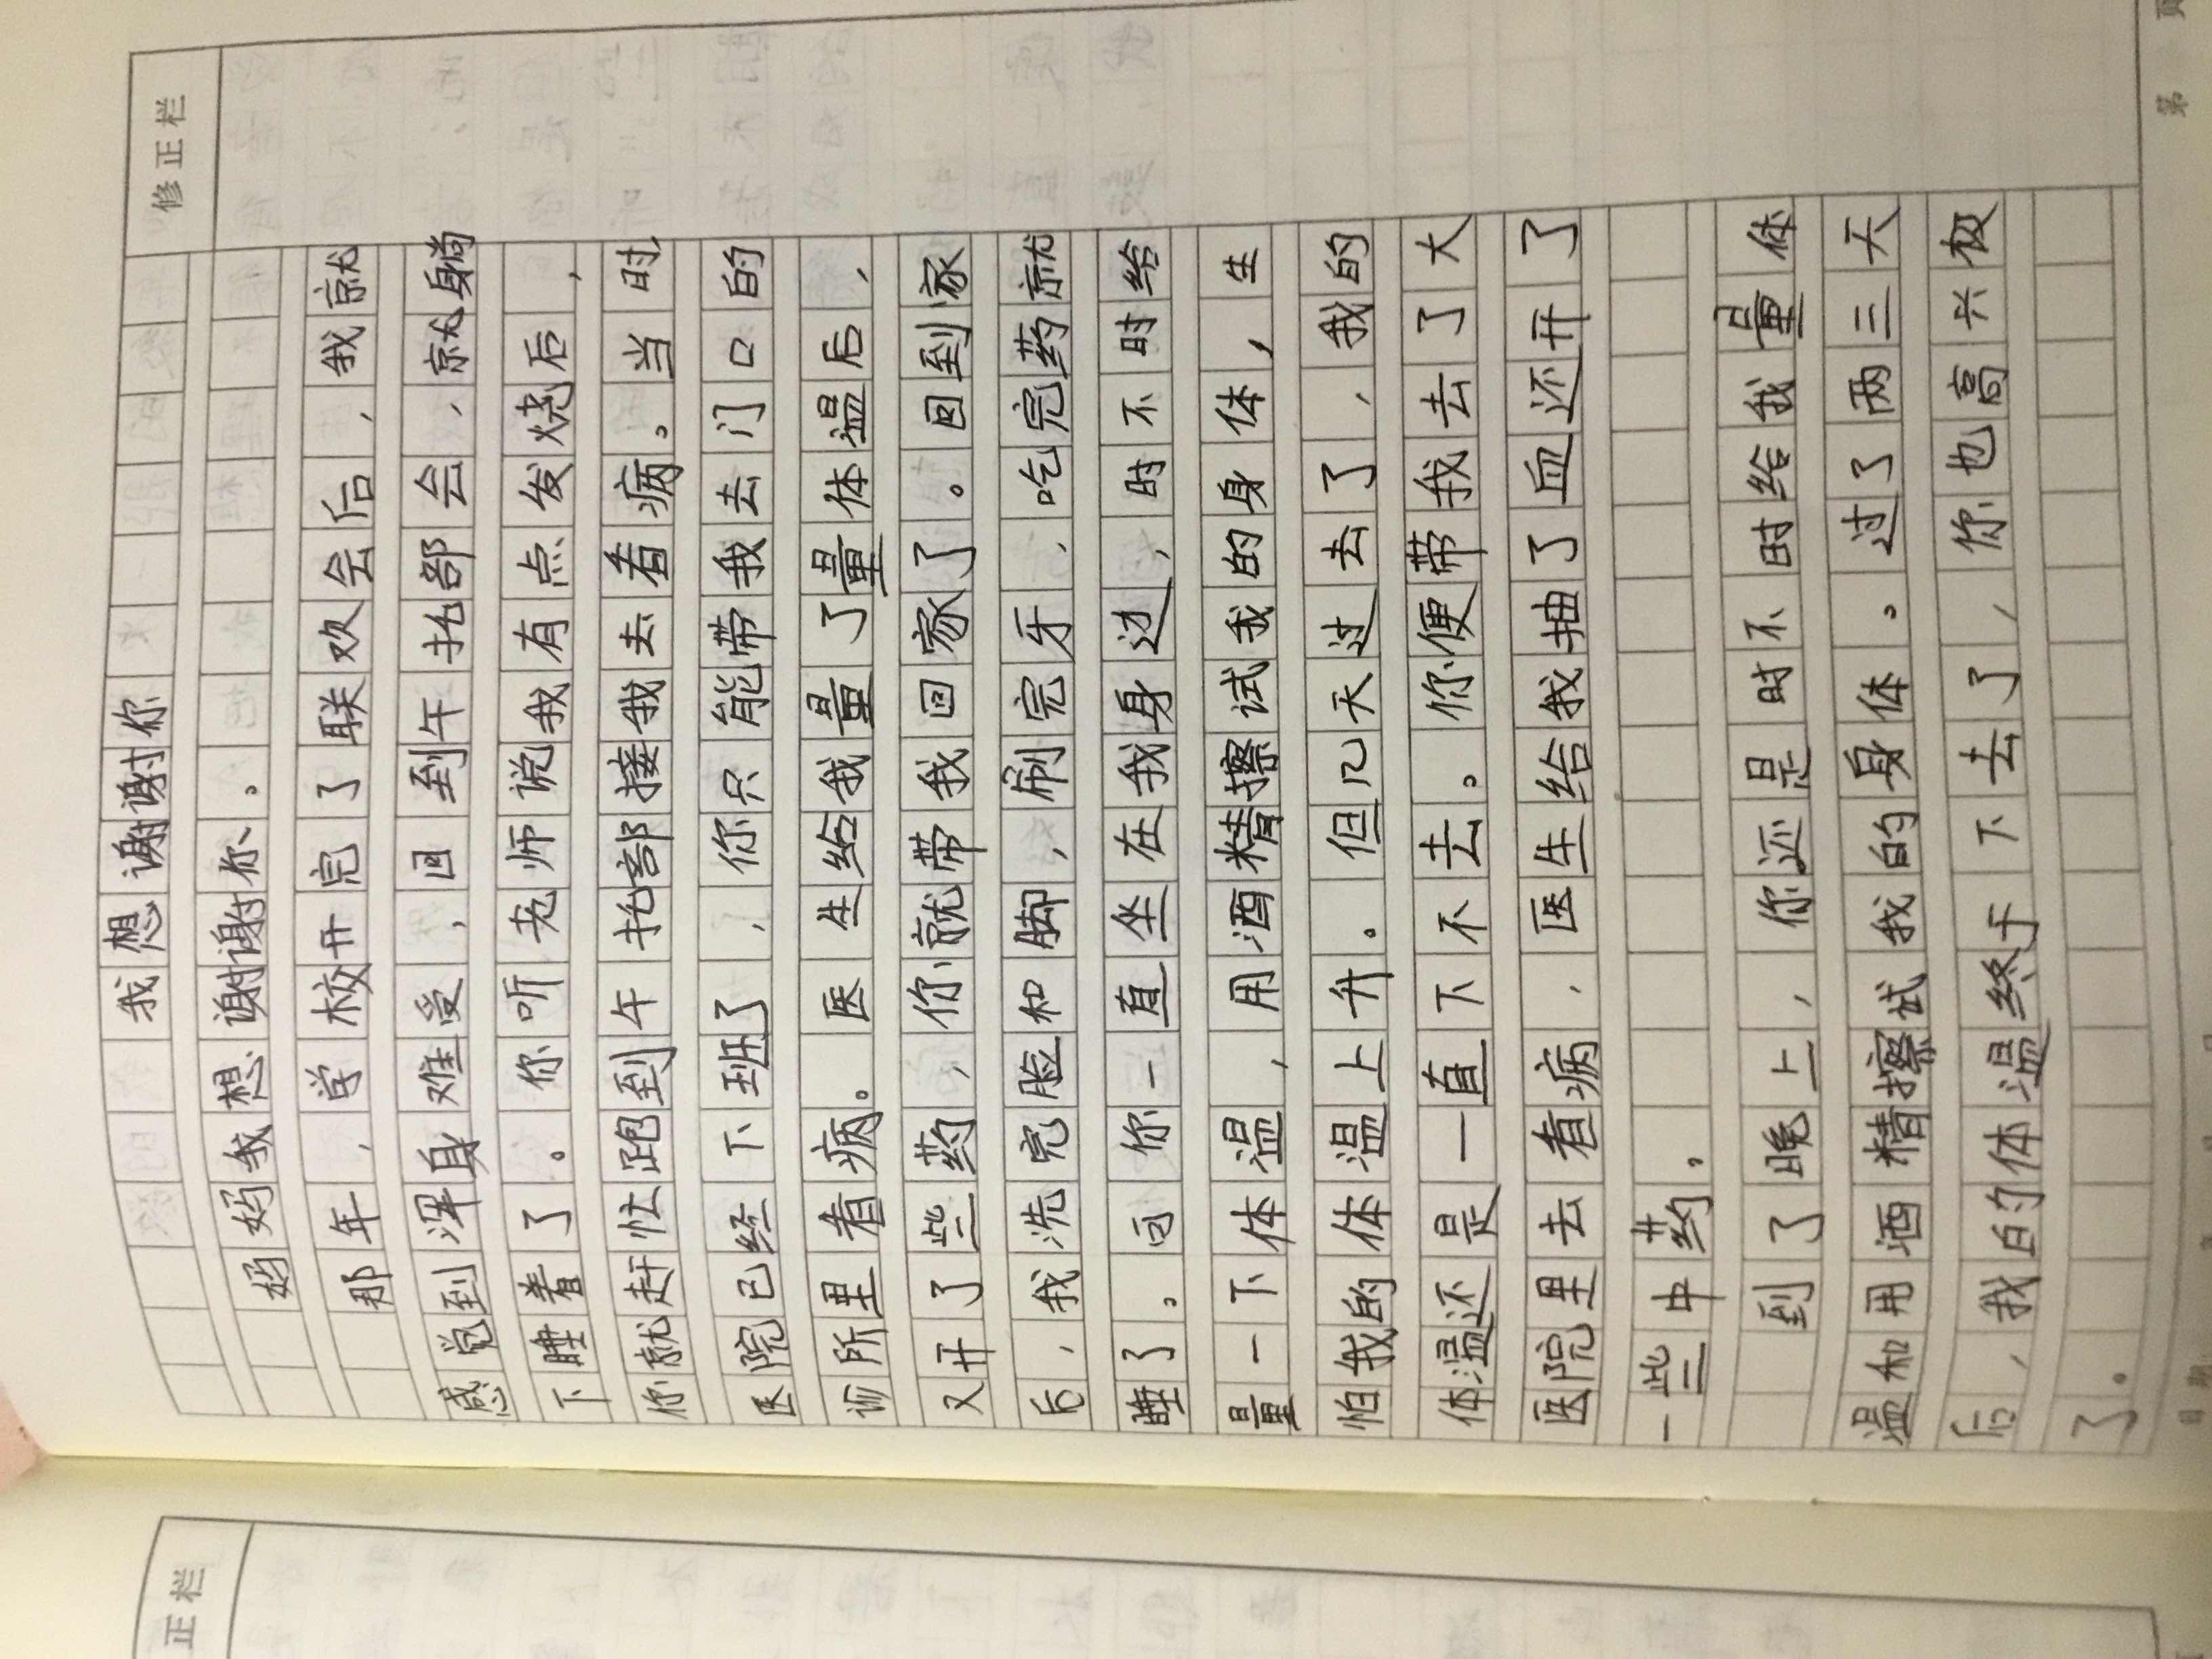 修正栏
我想谢谢你
妈妈我想谢谢你。
那年，学校开完了联欢会后，我就
感觉到浑身难受，回到午托部会，就躺
下睡着了。你听老师说我有点发烧后，
你就赶忙跑到午托部接我去看病。当时
医院已经下班了，你只能带我去门口的
诊所里看病。医生给我量了量体温后，
又开了些药，你就带我回家了。回到家
后，我洗完脸和脚，刷完牙，吃完药就
睡了。你一直坐在我身边，时不时给
量一下体温，用酒精擦试我的身体，生
怕我的体温上升。但几天过去了，我的
体温还是一直下不去。你便带我去了大
医院里去看病，医生给我抽了血还开了
一些中药。
到了晚上，你还是时不时给我量体
温和用酒精擦试我的身体。过了两三天
后，我的体温终于下去了，你也高兴极
了。
第 页
正栏